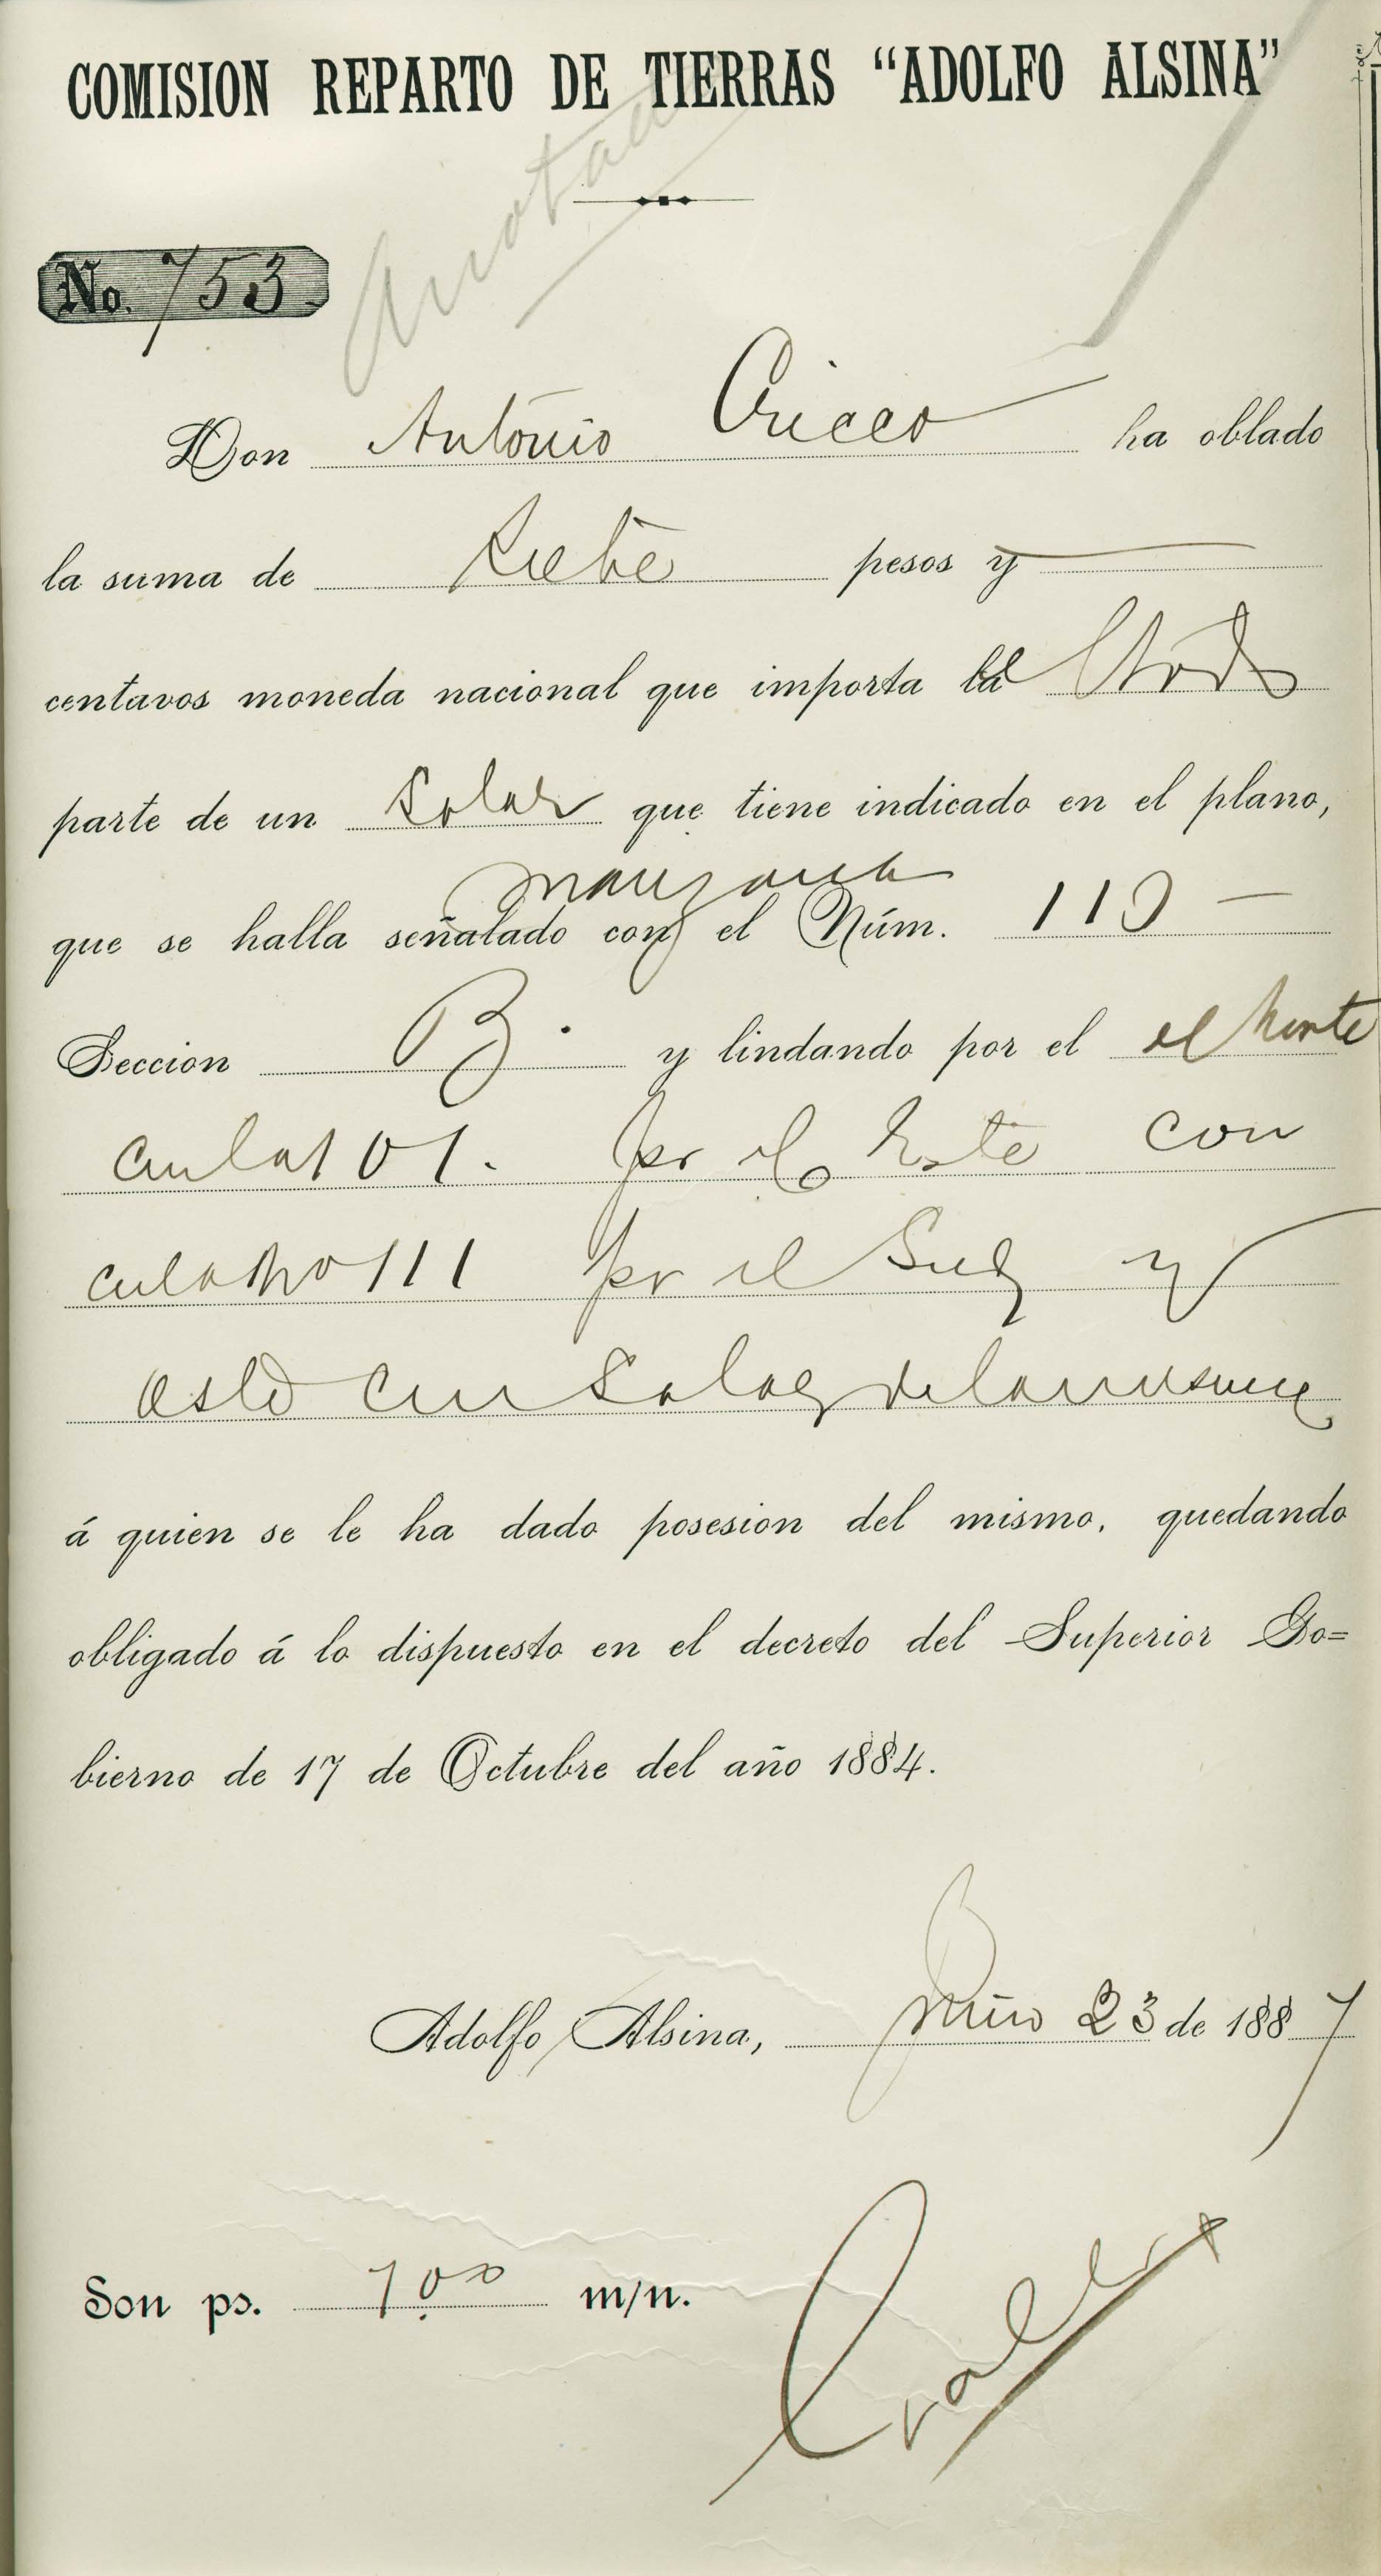 COMISION REPARTO DE TIERRAS “ADOLFO ALSINA”
Anotado
No. 753
Don Antonio Cricco ha oblado
la suma de Siete pesos y
centavos moneda nacional que importa la
parte de un Solar que tiene indicado en el plano,
manzana
que se halla señalado con el Núm. 110
Seccion B. y lindando por el el Norte
con la 101. por el Este con
111 por el Sud y
Oeste con Solar de la misma
á quien se le ha dado posesion del mismo, quedando
obligado á lo dispuesto en el decreto del Superior Go=
bierno de 17 de Octubre del año 1884.
Adolfo Alsina, Junio 23 de 1887
Son ps. 7.00 m/n.